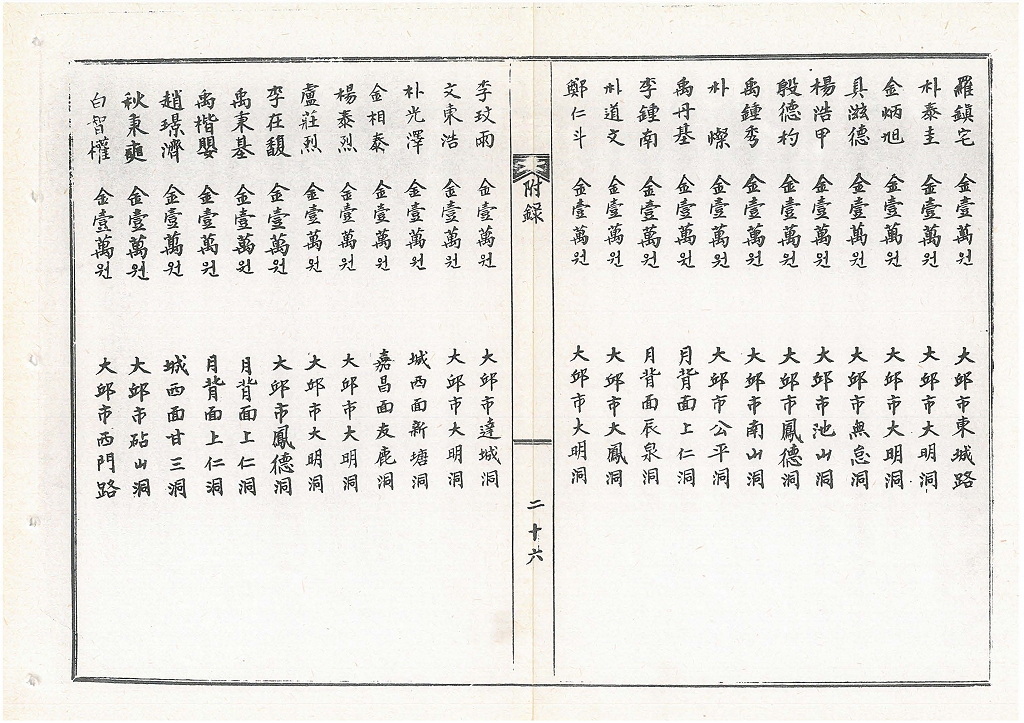 羅鎭宅 金壹萬원 大邱市東城路
朴泰圭 金壹萬원 大邱市大明洞
金炳旭 金壹萬원 大邱市大明洞
具滋德 金壹萬원 大邱市無怠洞
楊浩甲 金壹萬원 大邱市池山洞
殷德杓 金壹萬원 大邱市鳳德洞
禹鍾秀 金壹萬원 大邱市南山洞
朴燦 金壹萬원 大邱市公平洞
禹丹基 金壹萬원 月背面上仁洞
李鍾南 金壹萬원 月背面辰泉洞
朴道文 金壹萬원 大邱市大鳳洞
鄭仁斗 金壹萬원 大邱市大明洞
附録 二十六
李玟雨 金壹萬원 大邱市達城洞
文東浩 金壹萬원 大邱市大明洞
朴光澤 金壹萬원 城西面新塘洞
金相泰 金壹萬원 嘉昌面友鹿洞
楊泰烈 金壹萬원 大邱市大明洞
盧莊烈 金壹萬원 大邱市大明洞
李在馥 金壹萬원 大邱市鳳德洞
禹東基 金壹萬원 月背面上仁洞
禹楷嬰 金壹萬원 月背面上仁洞
趙璟濟 金壹萬원 城西面甘三洞
秋東 金壹萬원 大邱市砧山洞
白智權 金壹萬원 大邱市西門路